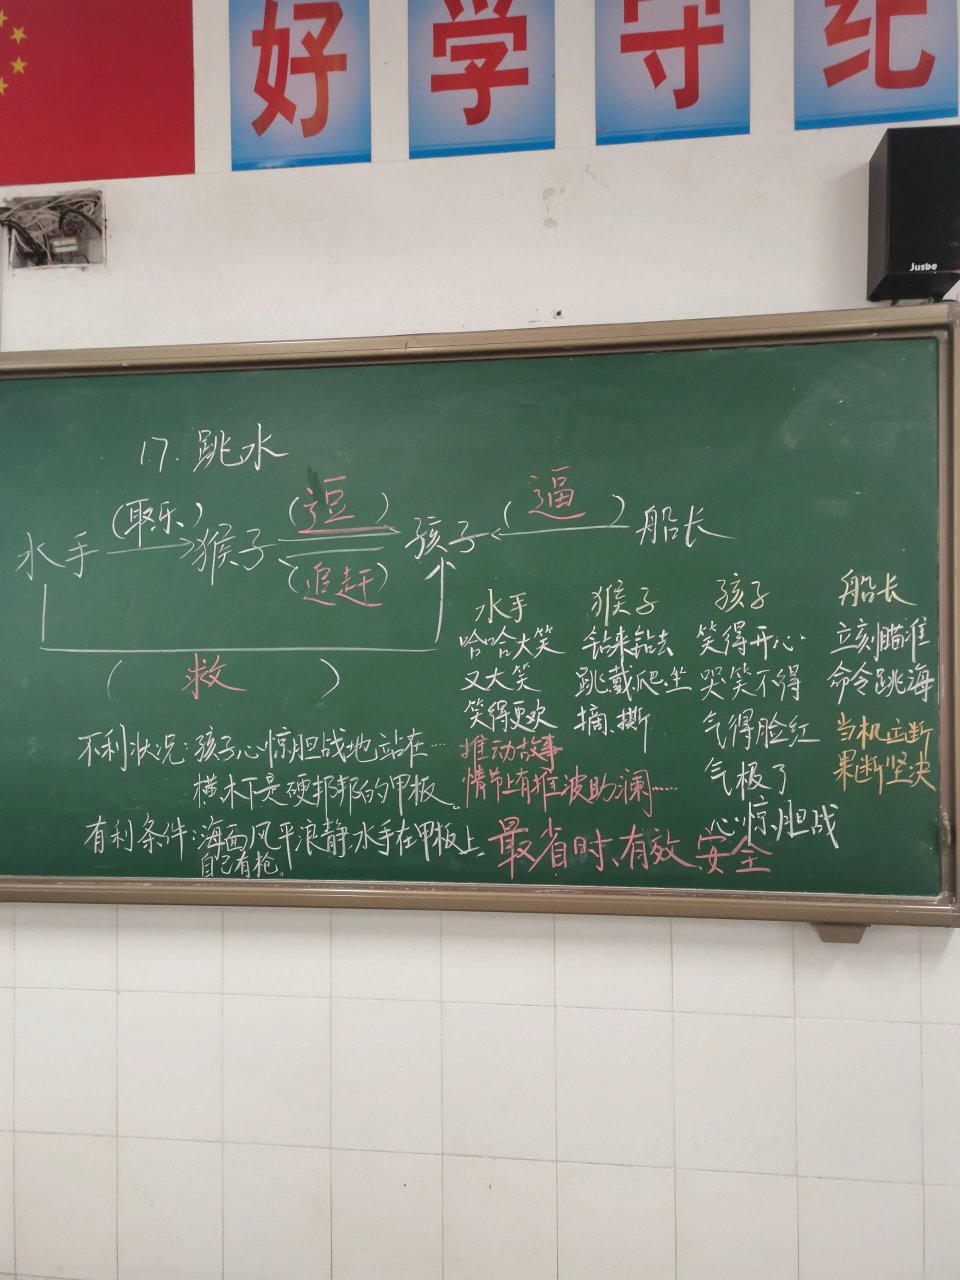 好学守纪
Jusbe
17.跳水
水手(取乐)猴子(逗)孩子(逼)船长
(追赶)
(救)
水手 猴子 孩子 船长
哈哈大笑 钻来钻去 笑得开心 立刻瞄准
又大笑 跳戴爬坐 哭笑不得 命令跳海
笑得更欢 摘、撕 气得脸红 当机立断
气极了 果断坚决
心惊胆战
推动故事
情节上有推波助澜……
不利状况:孩子心惊胆战地站在…
横木下是硬邦邦的甲板。
有利条件:海面风平浪静.水手在甲板上,
自己有枪。
最省时、有效、安全